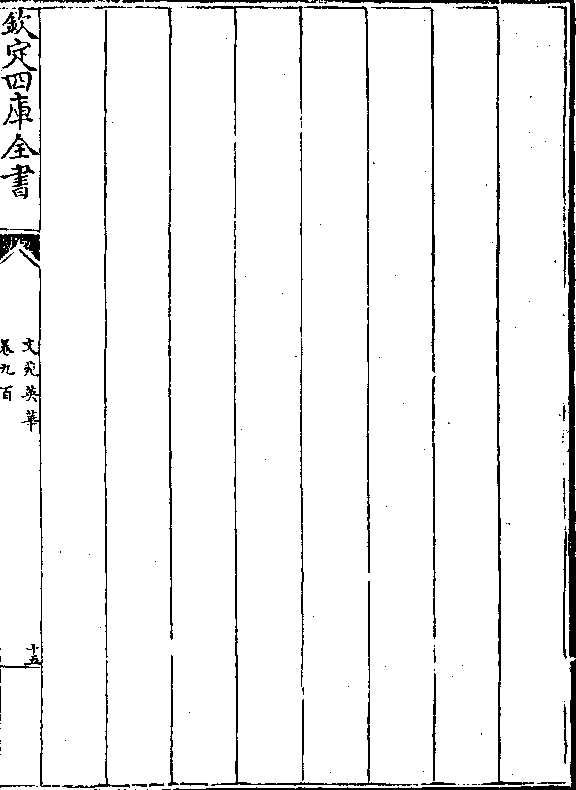 欽定四庫全書
文苑英華
卷九百
十五